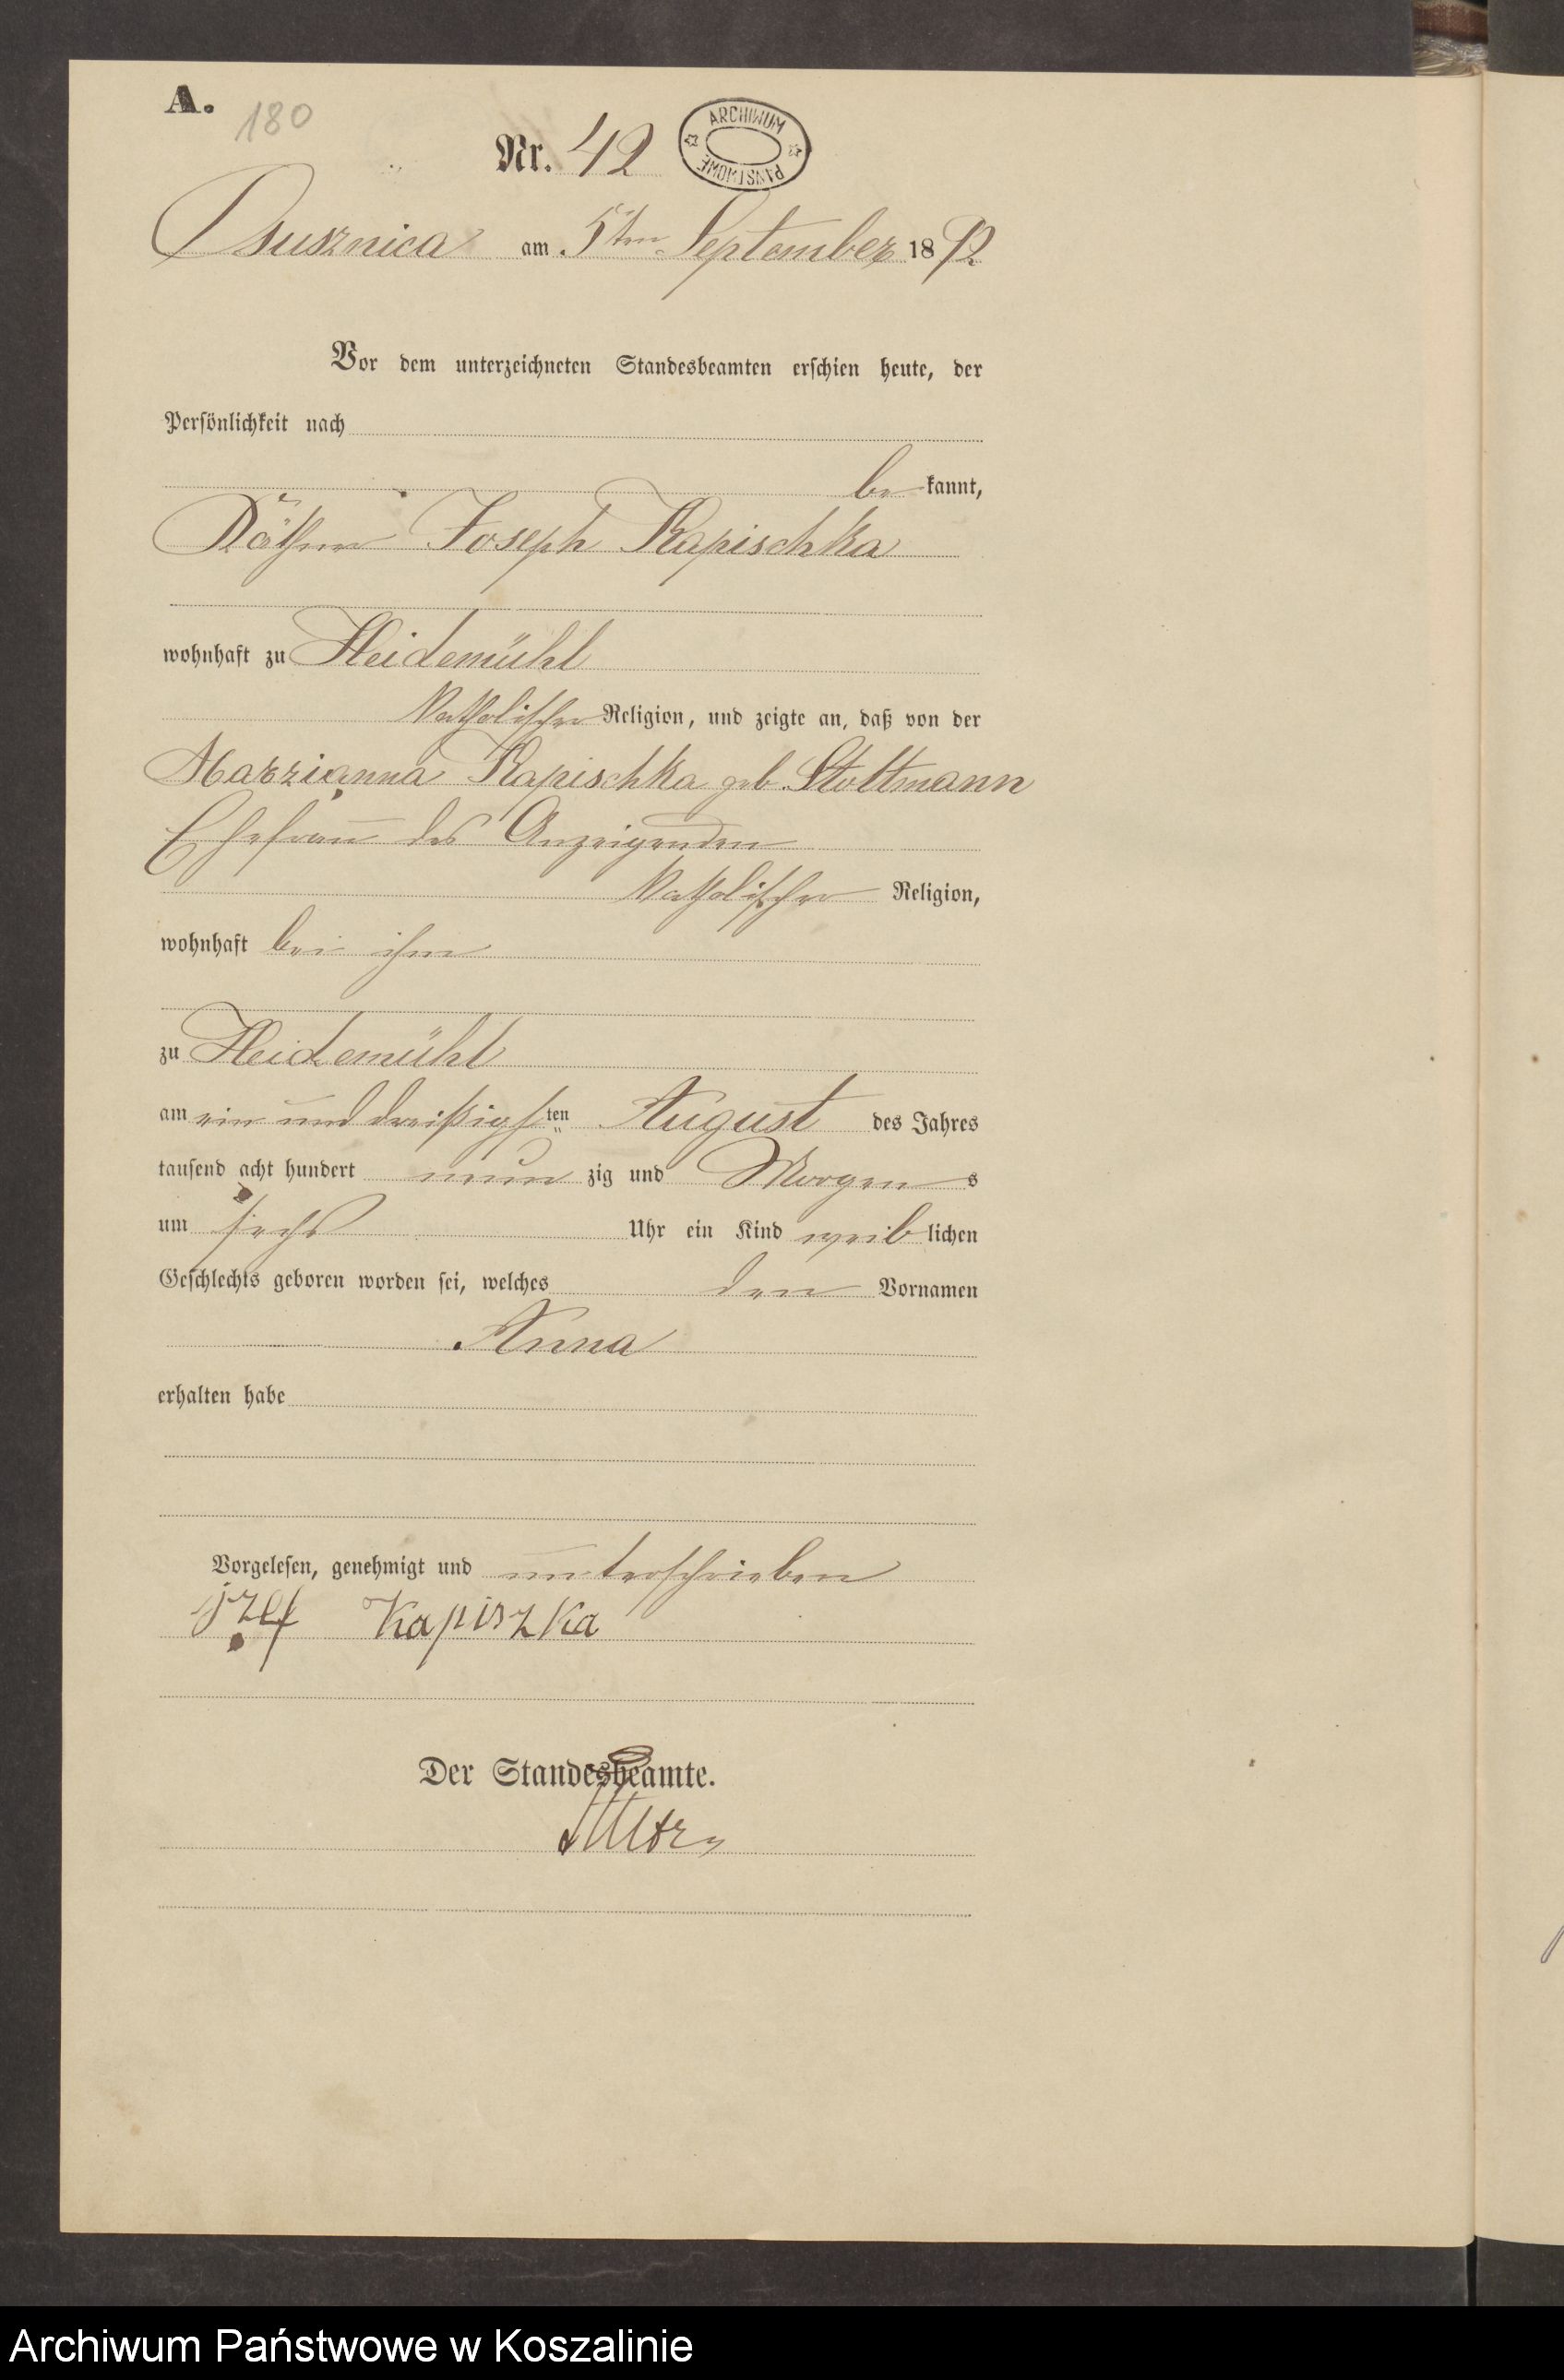 A.
180
Nr. 42
ARCHIWUM PAŃSTWOWE
am 5ten September 1892
Vor dem unterzeichneten Standesbeamten erschien heute, der
Persönlichkeit nach
be kannt,
Käthner Joseph Kapischka
wohnhaft zu Heidemühl
katholischer Religion, und zeigte an, daß von der
Marrianna Kapischka geb. Stoltmann
Ehefrau des Anzeigenden
katholischer Religion,
wohnhaft bei ihm
zu Heidemühl
am ein und dreißigsten August des Jahres
tausend acht hundert neun zig und Morgens
um sechs Uhr ein Kind weiblichen
Geschlechts geboren worden sei, welches den Vornamen
Anna
erhalten habe
Vorgelesen, genehmigt und unterschrieben
Kapiszka
Der Standesbeamte.
Archiwum Państwowe w Koszalinie